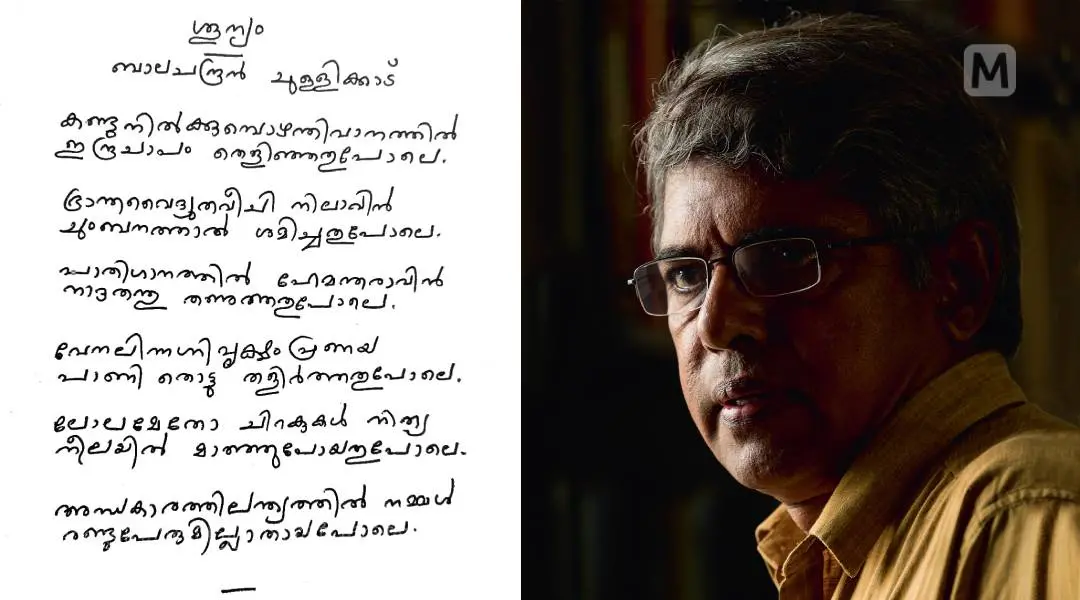 ശൂന്യം
ബാലചന്ദ്രൻ ചുള്ളിക്കാട്
കണ്ടുനിൽക്കുമ്പൊഴന്തിവാനത്തിൽ
ഇന്ദ്രചാപം തെളിഞ്ഞതുപോലെ.
ഭ്രാന്തവൈദ്യുതവീചി നിലാവിൻ
ചുംബനത്താൽ ശമിച്ചതുപോലെ.
പാതിഗാനത്തിൽ ഹേമന്തരാവിൻ
നാദതന്തു തണുത്തതുപോലെ.
വേനലിന്നഗ്നിവൃക്ഷം പ്രണയ
പാണി തൊട്ടു തളിർത്തതുപോലെ.
ലോലമേതോ ചിറകുകൾ നിത്യ
നീലയിൽ മാഞ്ഞുപോയതുപോലെ.
അന്ധകാരത്തിലന്ത്യത്തിൽ നമ്മൾ
രണ്ടുപേരുമില്ലാതായപോലെ.
M